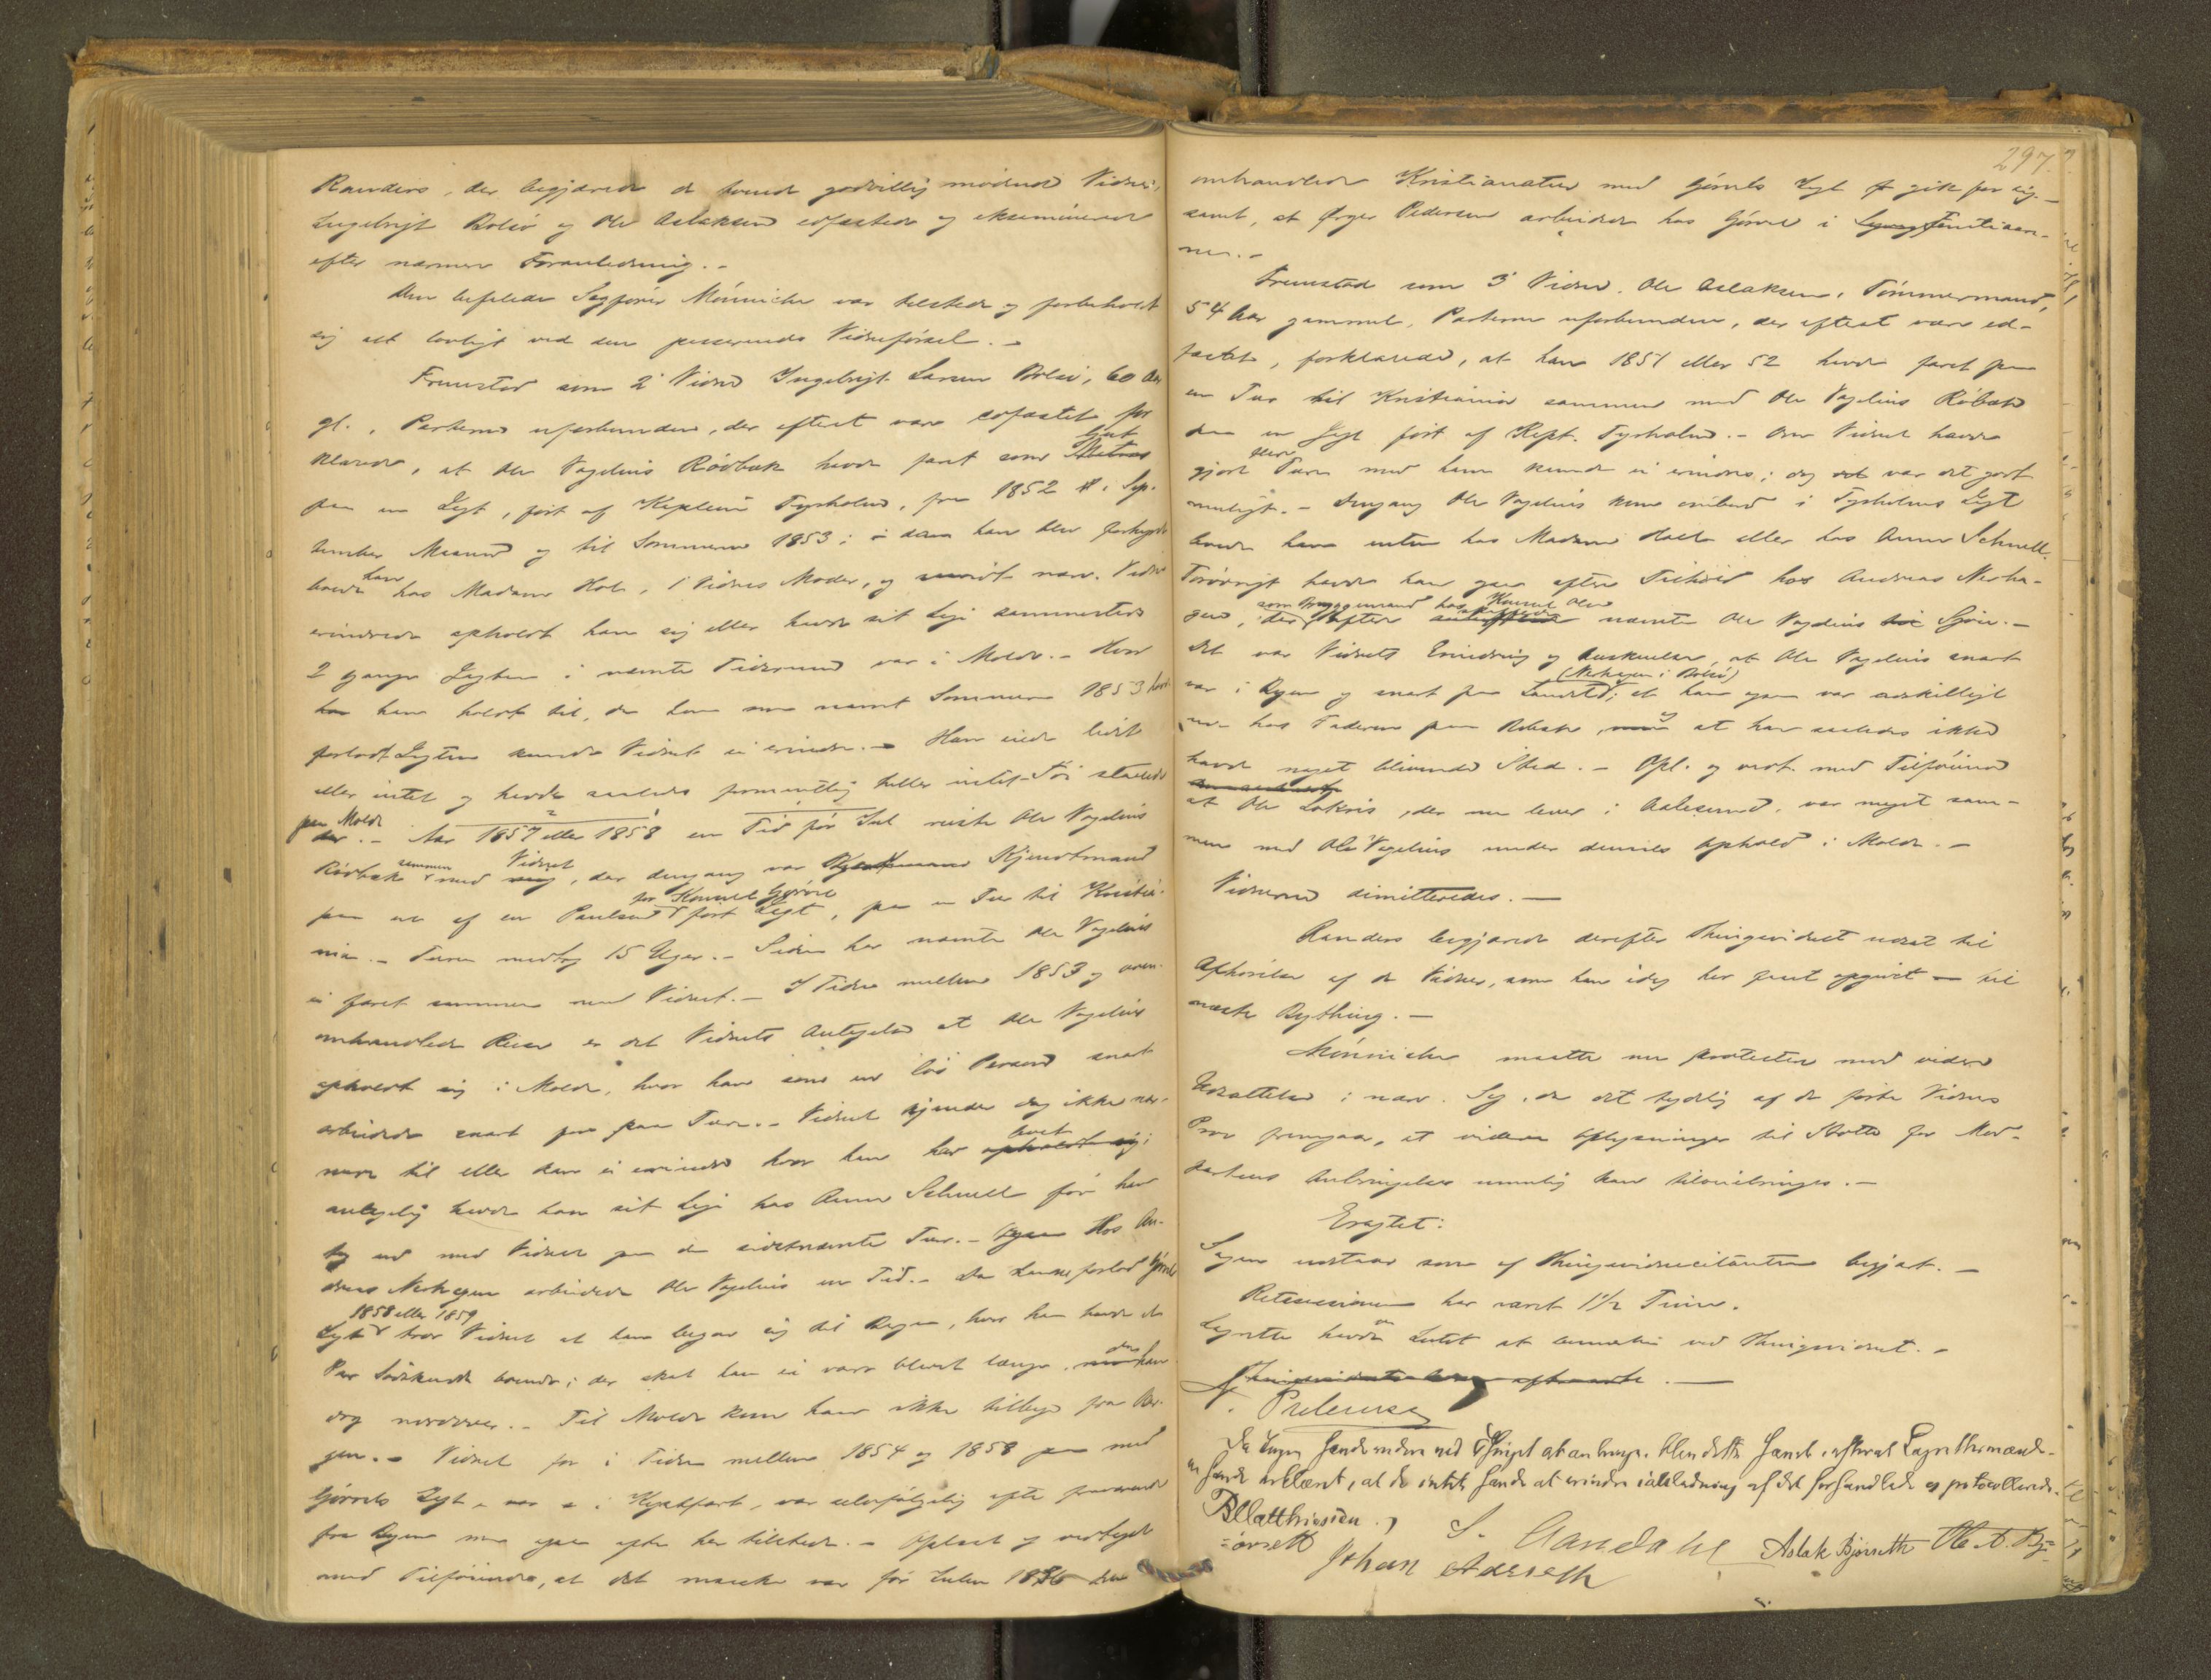 Randers, der begjærede de tvende godvillig mødende Vidner,
Ingebrigt Bolsø og Ole Aslaksen edfæstede og eksaminerede
efter nærmere Foranledning. -
Den befalede Sagfører Münniche var tilstede og forbeholdt
sig alt lovligt ved den passerende Vidneførsel. -
Fremstod som 2' Vidne Ingebrigt Larsen Bolsø, 60 Aar
gl., Parterne uforbunden, der efterat være edfæstet for
klarede, at Ole Vagelius Rødbæk havde faret som
paa en Jægt, ført af Kaptein Tyrholm, fra 1852 i Sep-
tember Maaned og til Sommeren 1853; da han blev forhyret
boede han hos Madame Holt, 1' Vidnes Moder, og nærv. Vidne
erindrede opholdt han sig eller havde sit Logi sammesteds
2 Gange Jægten i nævnte Tidsrum var i Molde. - Hvor
han holdt til, da han som nævnt Sommeren 1853
forlod Jægten kunde Vidnet ei erindre. - Han eiede lidet
eller intet og havde saaledes formentlig heller intet Tøi staaende
paa Molde. - Aar 1857 eller 1858 en Tid før Jul reiste Ole Vagelius
Rødbæk sammen med Vidnet, der dengang var Kjendtmand
paa en af en Paulsen for Konsul Gjørvel ført Jægt, paa en Tur til Kristia-
nia. - Turen medtog 15 Uger. - Siden har nævnte Ole Vagelius
ei faret sammen med Vidnet. - I Tiden mellem 1853 og oven
omhandlede Reise er det Vidnets Antagelse at Ole Vagelius
opholdt sig i Molde, hvor han som en løs Person snart
arbeidede snart for paa Ture. - Vidnet kjender dog ikke nær-
mere til eller kan ei erindre hvor han har boet
antagelig havde han sit Logi hos Anne Schnell før han
tog ud med Vidnet paa den sidstnævnte Tur. - Hos An-
dreas Nerhagen arbeidede Ole Vagelius en Tid. - Da han forlod Gjørvels
Jægt 1858 eller 1859 tror Vidnet at han begav sig til Bergen, hvor han havde et
Par Sødskende boende; der skal han ei være blevet længe, han
dog nordover. - Til Molde kom han ikke tilbage fra Ber-
gen. - Vidnet for i Tiden mellem 1854 og 1858 paa med
Gjørvels Jægt, var i Kystfart, var selvfølgelig ofte fraværende
fra Byen men ogsaa ofte her tilstede. - Oplæst og vedtaget
med Tilføiende, at det maaske var før Julen 1856
297.
omhandlede Kristianiatur med Gjørvels Jægt gik for sig. -
samt, at Ørger Pedersen arbeidede hos Gjørvel i
ne. -
Fremstod som 3' Vidne Ole Aslaksen, Tømmermand,
54 Aar gammel, Parterne uforbunden, der efterat være ed-
fæstet, forklarede, at han 1851 eller 52 havde faret paa
en Tur til Kristiania sammen med Ole Vagelius Rødbæk
paa en Jægt ført af Kapt. Tyrholm. - Om Vidnet havde
gjort flere Ture med ham kunde ei erindres; dog var det godt
muligt. - Dengang Ole Vagelius kom ombord i Tyrholms Jægt
boede han enten hos Madame Holt eller hos Anne Schnell.
Forøvrigt havde han ogsaa oftere Tilhold hos Andreas Nerha-
gen, som Bryggemand hos Konsul nævnte Ole Vagelius Sjøen. -
Det var Vidnets Erindring og Anskuelse, at Ole Vagelius snart
var i Byen og snart paa Landet (Nerhagen i Bolsø); at han ogsaa var adskilligt
hos Faderen paa Røbæk, og at han saaledes ikke
havde noget blivende Sted. - Opl. og vedt. med Tilføiende
at Ole Lakris, der nu lever i Aalesund, var meget sam-
men med Ole Vagelius under dennes Ophold i Molde. -
Vidnerne dimitteredes. -
Randers begjærede derefter Thingsvidnet udsat til
Afhørelse af de Vidner, som han idag har faaet opgivet - til
næste Bything. -
Münniche maatte nu protestere mod videre
Udsættelse i nærv. Sag, da det tydelig af de førte Vidners
Prov fremgaar, at videre Oplysninger til Støtte for Mod-
partens Anbringelser umulig kan tilveiebringes. -
Eragtet:
Sagen udstaar som af Thingsvidnecitanten begjært. -
Retssessionen har varet 1 1/2 Time.
Lagrette havde Intet at bemærke ved Thingsvidnet. -
Da Ingen havde videre ved Thinget at anbringe, blev dette hævet, efterat Lagrettemænde-
ne havde erklæret, at de intet havde at erindre i anledning af det forhandlede og protocollerede.
BMatthiesen.
S. Gandahl Aslak Bjørseth Ole A. Bj=
=ørsett Johan Aderseth